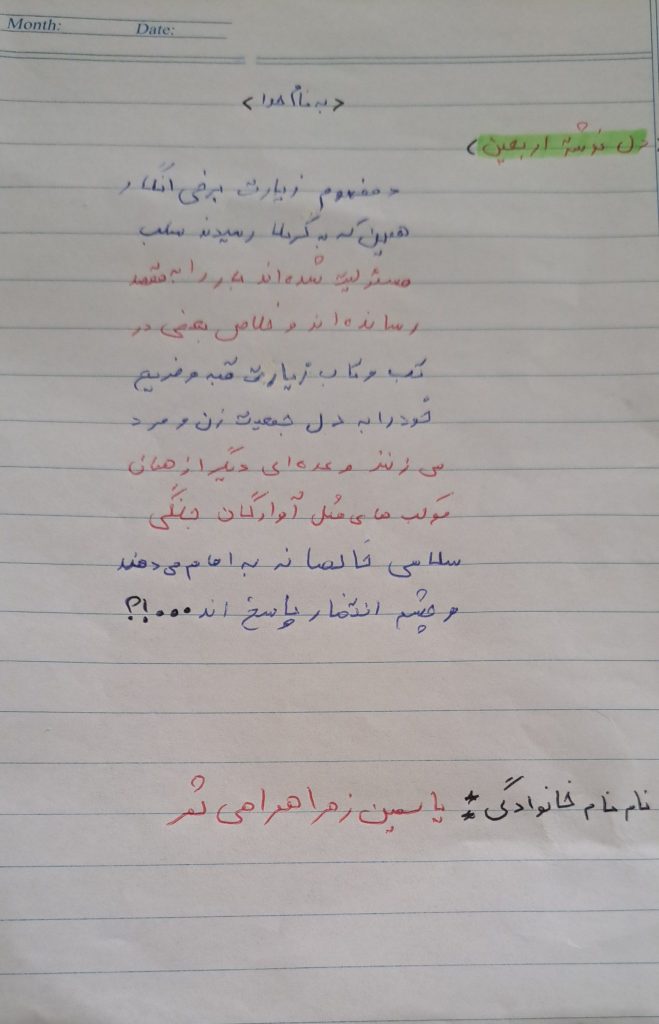 Month:
Date:
<به نام خدا>
دل نوشته اربعین)
در مفهوم زیارت برخی انگار
همین که به کربلا رسیدند سلب
مسئولیت شده‌اند بار را به مقصد
رسانده‌اند و خلاص بعضی در
تب و تاب زیارت قبه و ضریح
خود را به دل جمعیت زن و مرد
می زنند و عده‌ای دیگر از همان
موکب های مثل آوارگان جنگی
سلامی خالصانه به امام می‌دهند
و چشم انتظار پاسخ اند ...!؟
نام نام خانوادگی : یاسمین زهرا